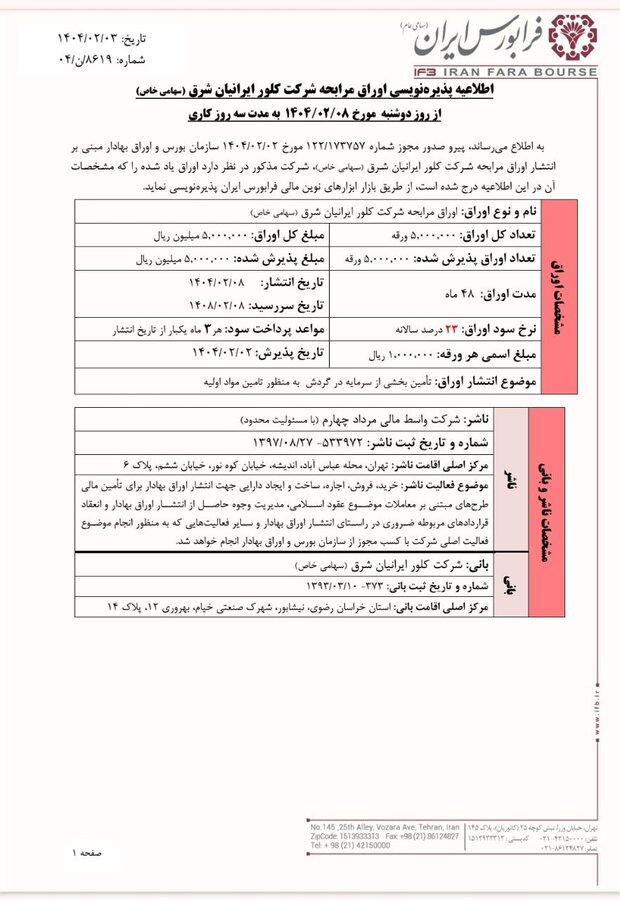 فرابورس ایران (سهامی عام)
IFB IRAN FARA BOURSE
تاریخ: ۱۴۰۴/۰۲/۰۳
شماره: ۸۶۱۹/ن/۰۴
اطلاعیه پذیره‌نویسی اوراق مرابحه شرکت کلور ایرانیان شرق (سهامی خاص)
از روز دوشنبه مورخ ۱۴۰۴/۰۲/۰۸ به مدت سه روز کاری
به اطلاع می‌رساند، پیرو صدور مجوز شماره ۱۲۲/۱۷۳۷۵۷ مورخ ۱۴۰۴/۰۲/۰۲ سازمان بورس و اوراق بهادار مبنی بر
انتشار اوراق مرابحه شرکت کلور ایرانیان شرق (سهامی خاص)، شرکت مذکور در نظر دارد اوراق یاد شده را که مشخصات
آن در این اطلاعیه درج شده است، از طریق بازار ابزارهای نوین مالی فرابورس ایران پذیره‌نویسی نماید.
مشخصات اوراق
نام و نوع اوراق: اوراق مرابحه شرکت کلور ایرانیان شرق (سهامی خاص)
تعداد کل اوراق: ۵,۰۰۰,۰۰۰ ورقه
مبلغ کل اوراق: ۵,۰۰۰,۰۰۰ میلیون ریال
تعداد اوراق پذیرش شده: ۵,۰۰۰,۰۰۰ ورقه
مبلغ پذیرش شده: ۵,۰۰۰,۰۰۰ میلیون ریال
مدت اوراق: ۴۸ ماه
تاریخ انتشار: ۱۴۰۴/۰۲/۰۸
تاریخ سررسید: ۱۴۰۸/۰۲/۰۸
نرخ سود اوراق: ۲۳ درصد سالانه
مواعد پرداخت سود: هر ۳ ماه یکبار از تاریخ انتشار
مبلغ اسمی هر ورقه: ۱,۰۰۰,۰۰۰ ریال
تاریخ پذیرش: ۱۴۰۴/۰۲/۰۲
موضوع انتشار اوراق: تأمین بخشی از سرمایه در گردش به منظور تامین مواد اولیه
مشخصات ناشر و بانی
ناشر
ناشر: شرکت واسط مالی مرداد چهارم (با مسئولیت محدود)
شماره و تاریخ ثبت ناشر: ۵۳۳۹۷۲- ۱۳۹۷/۰۸/۲۷
مرکز اصلی اقامت ناشر: تهران، محله عباس آباد، اندیشه، خیابان کوه نور، خیابان ششم، پلاک ۶
موضوع فعالیت ناشر: خرید، فروش، اجاره، ساخت و ایجاد دارایی جهت انتشار اوراق بهادار برای تأمین مالی
طرح‌های مبتنی بر معاملات موضوع عقود اسلامی، مدیریت وجوه حاصل از انتشار اوراق بهادار و انعقاد
قراردادهای مربوطه ضروری در راستای انتشار اوراق بهادار و سایر فعالیت‌هایی که به منظور انجام موضوع
فعالیت اصلی شرکت با کسب مجوز از سازمان بورس و اوراق بهادار انجام خواهد شد.
بانی
بانی: شرکت کلور ایرانیان شرق (سهامی خاص)
شماره و تاریخ ثبت بانی: ۳۷۳- ۱۳۹۳/۰۳/۱۰
مرکز اصلی اقامت بانی: استان خراسان رضوی، نیشابور، شهرک صنعتی خیام، بهروری ۱۲، پلاک ۱۴
www.ifb.ir
تهران، خیابان وزرا، نبش کوچه ۲۵ (کاتوزیان)، پلاک ۱۴۵
تلفن: ۴۲۱۵۰۰۰۰-۰۲۱ کدپستی: ۱۵۱۳۹۳۳۳۱۳
نمابر: ۸۶۱۲۴۸۲۷-۰۲۱
No.145 ,25th Alley, Vozara Ave, Tehran, Iran
ZipCode: 1513933313 Fax +98 (21) 86124827
Tel: + 98 (21) 42150000
صفحه ۱